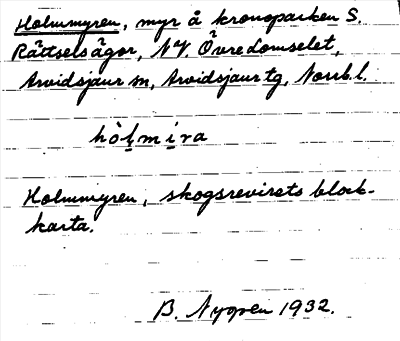 Holmmyren, myr å kronoparken S.
Rättselsågor, NV. Övre Lomselet,
Arvidsjaur sn, Arvidsjaur tg, Norrb.l.
hòlmira
Holmmyren, skogsrevirets block-
karta.
B. Nygren 1932.